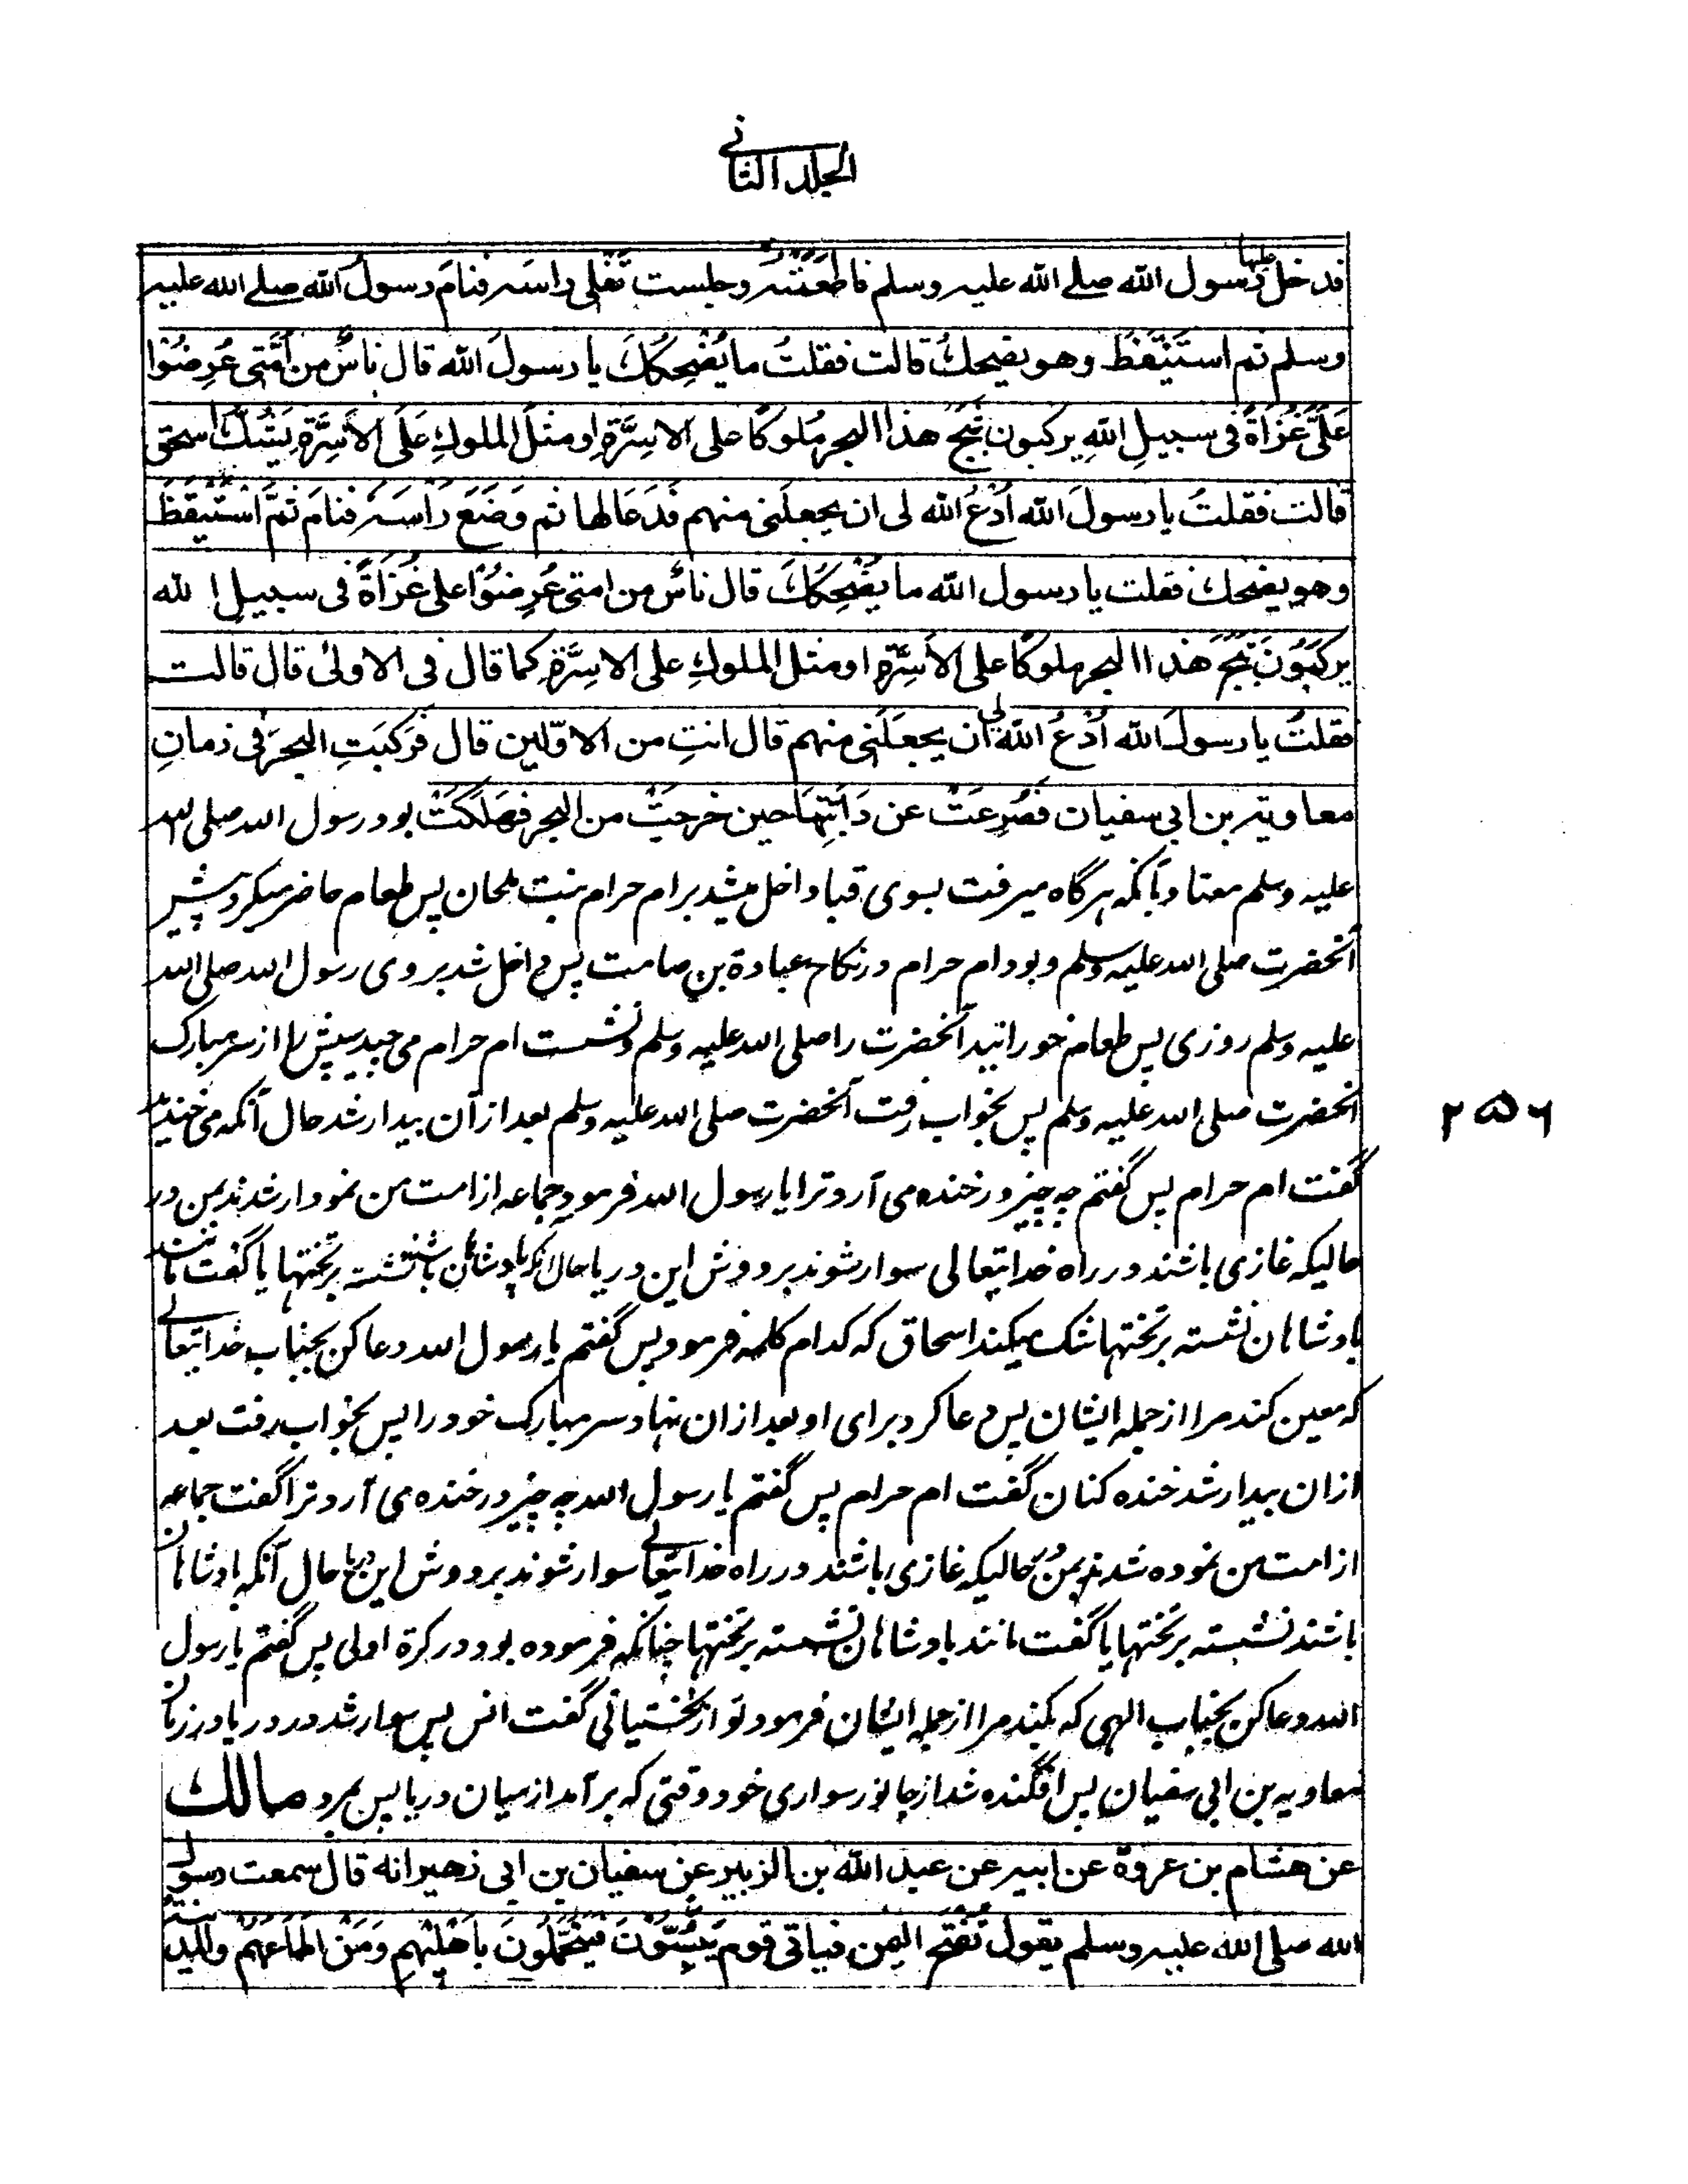 الجلد الثانی
فدخل علیها رسول الله صلے الله علیه وسلم فاطعمته وجلست تَفْلی راسه فنامَ رسولُ الله صلے الله علیه
وسلم ثم استَیْقَظَ وهو یضحكُ قالت فقلتُ ما یُضْحِكُكَ یا رسولَ الله قال ناسٌ من اُمَّتی عُرِضُوْا
عَلَیَّ غُزَاةً فی سبیلِ اللهِ یرکبون ثَبَجَ هذا البحر مُلوكًا علی الاسِرَّةِ او مثلَ الملوكِ عَلَی الْاَسِرَّةِ یَشُكُّ اسحق
قالت فقلتُ یا رسولَ الله اُدْعُ الله لی ان یجعلَنی منهم فَدَعَا لها ثم وَضَعَ رَاْسَه فنامَ ثمَّ اسْتَیْقَظَ
وهو یضحك فقلت یا رسول الله ما یُضْحِكُكَ قال ناسٌ من امتی عُرِضُوْا علی غُزَاةً فی سبیلِ الله
یرکَبُوْنَ ثَبَجَ هذا البحر ملوكًا علی الْاَسِرَّةِ او مثلَ الملوكِ علی الاسِرَّةِ کما قال فی الاولیٰ قال قالت
فقلتُ یا رسولَ الله اُدْعُ اللهَ لی ان یجعَلَنی منهم قال انتِ من الاوّلین قال فَرَکِبَتِ البحرَ فی زمانِ
معاویة بن ابی سفیان فَصُرِعَتْ عن دَابَّتِهَا حین خرجَتْ من البحر فهَلَکَتْ بود رسول الله صلی الله
علیه وسلم معتاد بآنکه هرگاه میرفت بسوی قبا داخل میشد بر ام حرام بنت ملحان پس طعام حاضر میکرد پیش
آنحضرت صلی الله علیه وسلم و بود ام حرام در نکاح عبادة بن صامت پس داخل شد بروی رسول الله صلی الله
علیه وسلم روزی پس طعام خورانید آنحضرت را صلی الله علیه وسلم و نشست ام حرام می چید سپش را از سر مبارک
آنحضرت صلی الله علیه وسلم پس بخواب رفت آنحضرت صلی الله علیه وسلم بعد از آن بیدار شد حال آنکه می خندید
گفت ام حرام پس گفتم چه چیز در خنده می آرد ترا یا رسول الله فرمود جماعه از امت من نمودار شدند بمن در
حالیکه غازی باشند در راه خدایتعالی سوار شوند بر دوش این دریا حال آنکه پادشاهان باشند نشسته بر تختها یا گفت مانند
پادشاهان نشسته بر تختها شک میکند اسحاق که کدام کلمه فرمود پس گفتم یا رسول الله دعا کن بجناب خدایتعالے
که معین کند مرا از جمله ایشان پس دعا کرد برای او بعد ازان نهاد سر مبارک خود را پس بخواب رفت بعد
ازان بیدار شد خنده کنان گفت ام حرام پس گفتم یا رسول الله چه چیز در خنده می آرد ترا گفت جماعه
از امت من نموده شدند بمن در حالیکه غازی باشند در راه خدایتعالے سوار شوند بر دوش این دریا حال آنکه پادشاهان
باشند نشسته بر تختها یا گفت مانند پادشاهان نشسته بر تختها چنانکه فرموده بود در کرة اولی پس گفتم یا رسول
الله دعا کن بجناب الهی که بکند مرا از جمله ایشان فرمود تو از نخستیانی گفت انس پس سوار شد در دریا در زمان
معاویه بن ابی سفیان پس افگنده شد از جانور سواری خود وقتی که بر آمد از میان دریا پس بمرد مالك
عن هشام بن عروة عن ابیه عن عبد الله بن الزبیر عن سفیان بن ابی زهیر انه قال سمعت رسول
الله صلی الله علیه وسلم یقول تُفْتَحُ الیمن فیاتی قوم یَبُسُّوْنَ فَیَتَحَمَّلُوْنَ بِاَهْلِیْهِمْ وَمَنْ اَطَاعَهُمْ والمدینة
۲۵۶